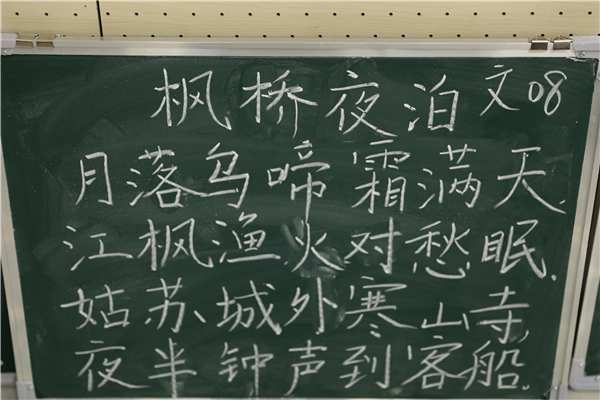 枫桥夜泊 文08
月落乌啼霜满天.
江枫渔火对愁眠.
姑苏城外寒山寺,
夜半钟声到客船.